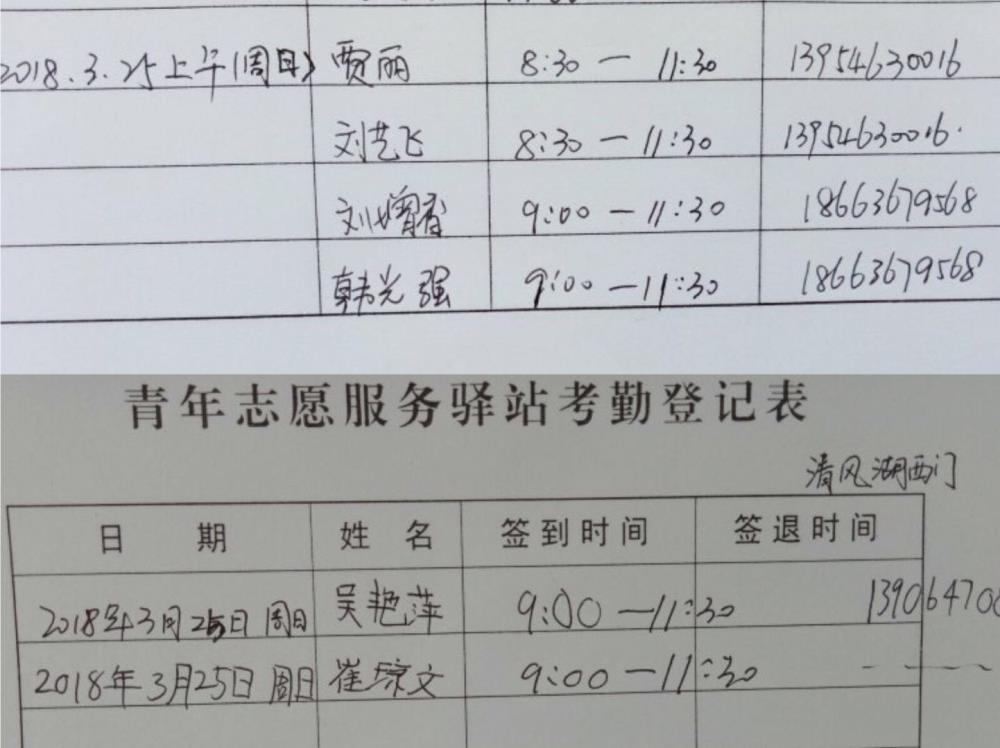 2018.3.25上午(周日) 贾丽 8:30 — 11:30 13954630016
刘艺飞 8:30 — 11:30 13954630016.
刘增香 9:00 — 11:30 18663679568
韩光强 9:00 — 11:30 18663679568
青年志愿服务驿站考勤登记表
清风湖西门
日 期 姓 名 签到时间 签退时间
2018年3月25日 周日 吴艳萍 9:00 — 11:30 139064700
2018年3月25日 周日 崔琼文 9:00 — 11:30